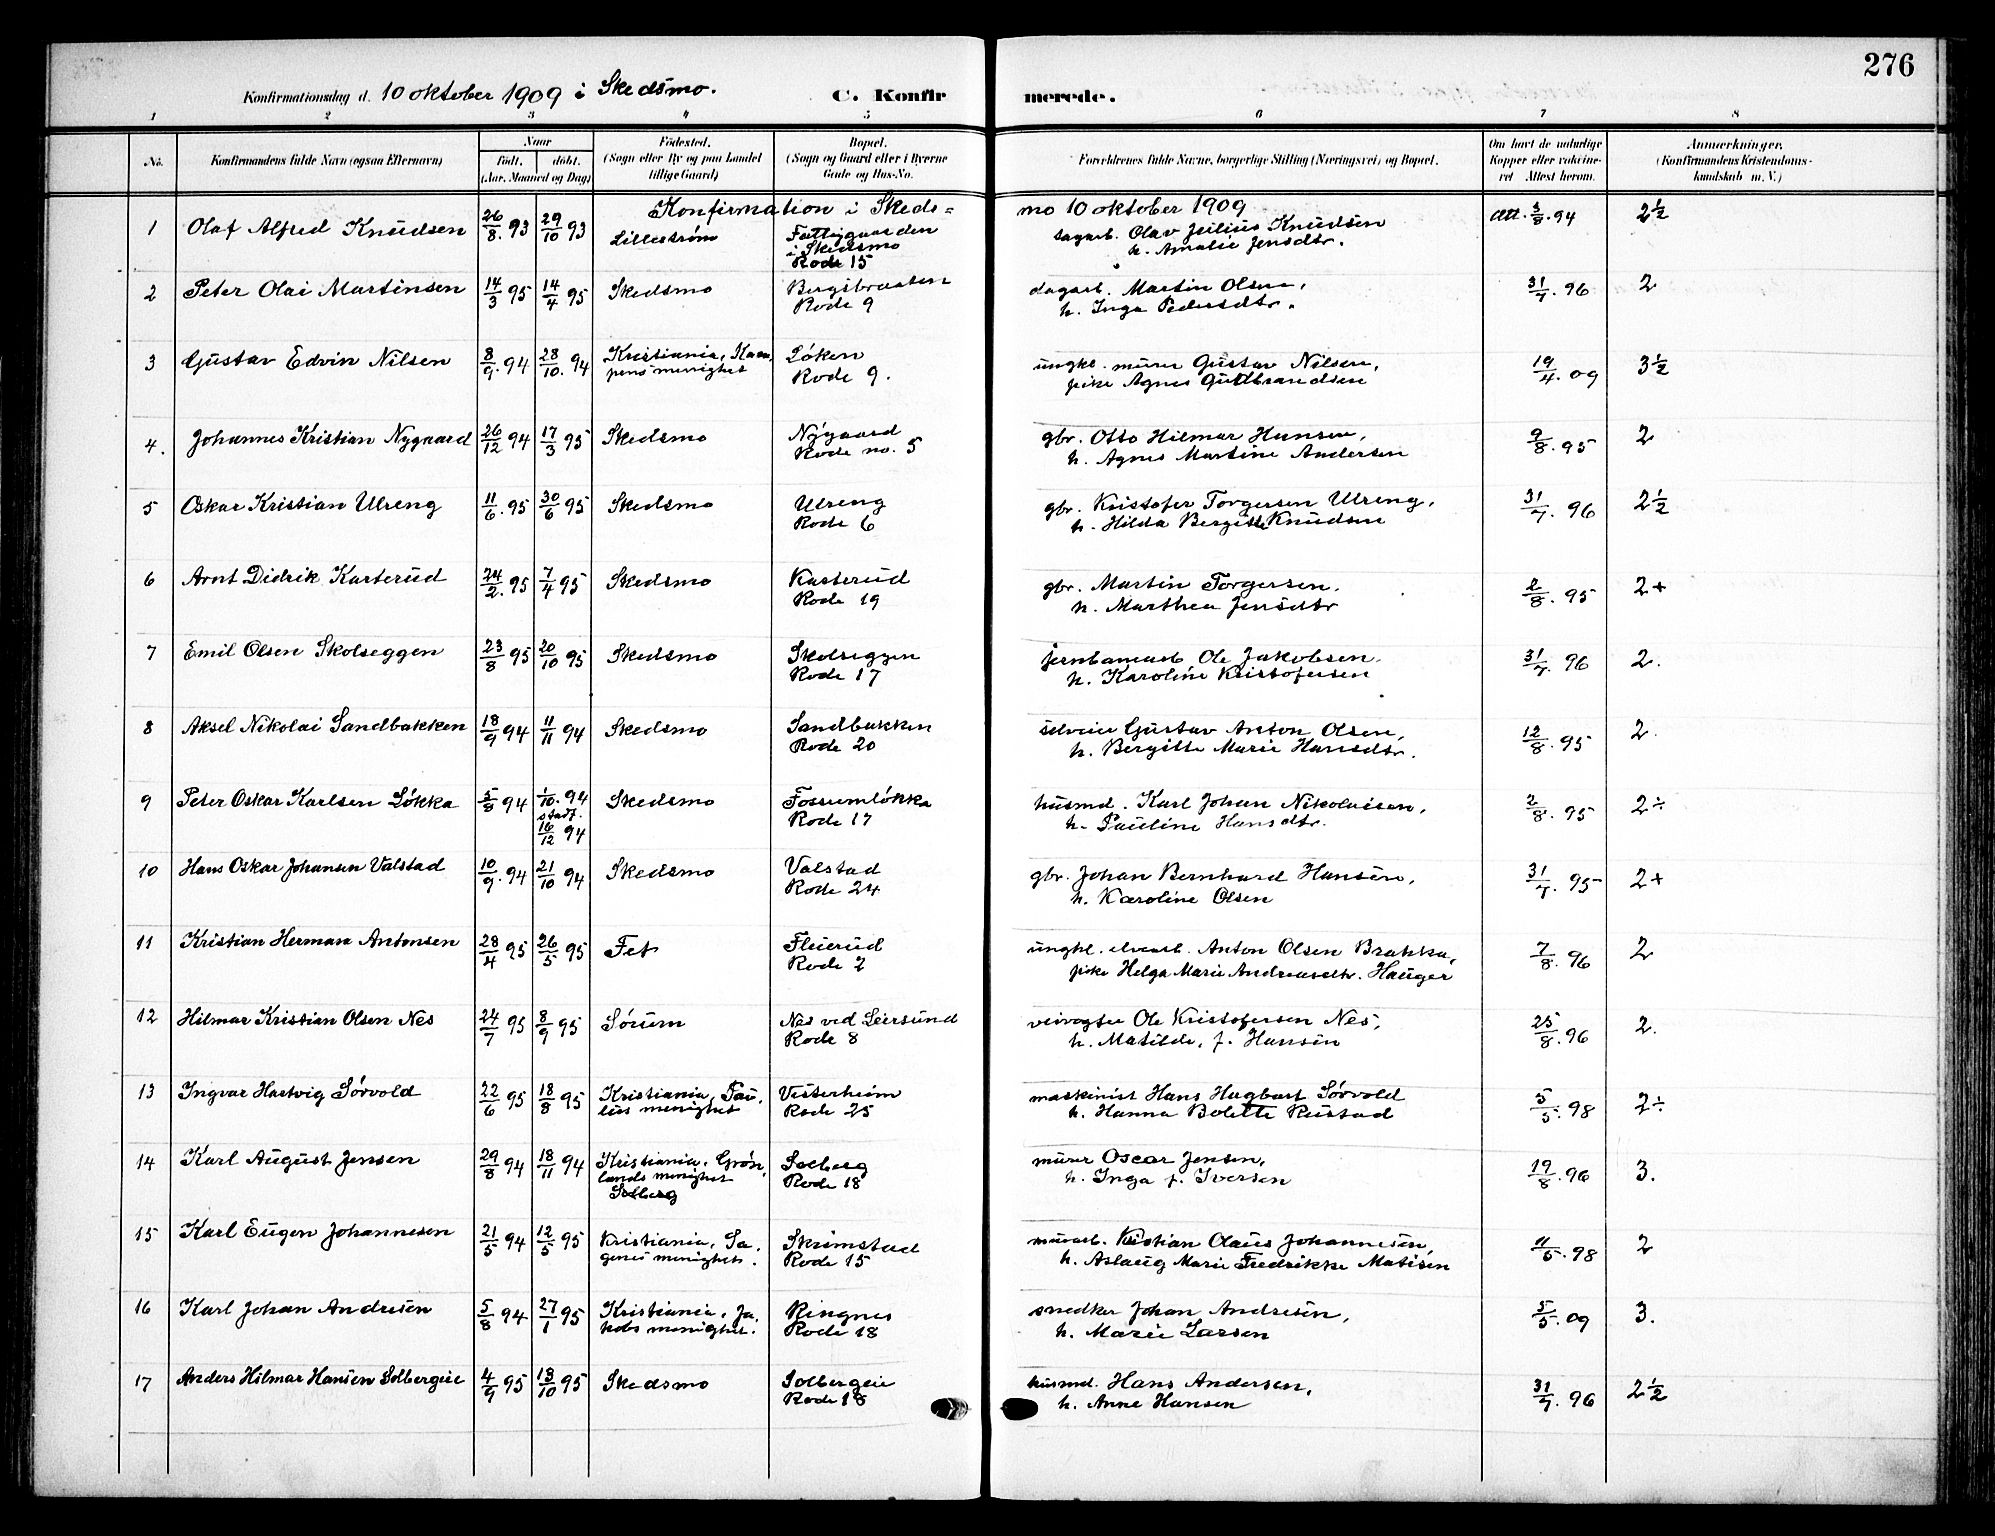 276
Konfirmationsdag d. 10 oktober 1909 i Skedsmo.
C. Konfirmerede.
1 2 3 4 5 6 7 8
No.
Konfirmandens fulde Navn (ogsaa Efternavn)
Naar
födt. döbt.
(Aar, Maaned og Dag)
Födested.
(Sogn eller By og paa Landet
tillige Gaard)
Bopæl.
(Sogn og Gaard eller i Byerne
Gade og Hus-No.
Forældrenes fulde Navne, borgerlige Stilling (Næringsvei) og Bopæl.
Om havt de naturlige
Kopper eller vakcine-
ret Attest herom.
Anmærkninger.
(Konfirmandens Kristendoms-
kundskab m. V.)
Konfirmation i Skeds=
mo 10 oktober 1909
1 Olaf Alfred Knudsen 26/8. 93 29/10 93 Lillestrøm Fattiggaarden
i Skedsmo
Rode 15
dagarb. Olav Julius Knudsen
h. Amalie Jensdtr.
Att. 3/8. 94 2½
2 Peter Olai Martinsen 14/3 95 14/4 95 Skedsmo Bergsbraaten
Rode 9
dagarb. Martin Olsen,
h. Inga Pedersdtr.
31/7. 96 2
3 Gustav Edvin Nilsen 8/9. 94 28/10. 94 Kristiania, Kam
pens menighet
Løken
Rode 9.
ungkl. murer Gustav Nilsen,
pike Agnes Gudbrandsen
19/4. 09 3½
4. Johannes Kristian Nygaard 26/12 94 17/3 95 Skedsmo Nygaard
Rode no. 5
gbr. Otto Hilmar Hansen,
h. Agnes Martine Andersen
9/8. 95 2
5 Oskar Kristian Ulreng 11/6. 95 30/6 95 Skedsmo Ulreng
Rode 6
gbr. Kristofer Torgersen Ulreng,
h. Hilda Bergitte Knudsen
31/7. 96 2½
6 Arnt Didrik Karterud 24/2. 95 7/4 95 Skedsmo Kasterud
Rode 19
gbr. Martin Torgersen,
h. Marthea Jensdtr
2/8. 95 2+
7 Emil Olsen Skolseggen 23/8 95 20/10 95 Skedsmo Skolseggen
Rode 17
jernbanearb. Ole Jakobsen.
h. Karoline Kristofersen
31/7. 96 2.
8 Aksel Nikolai Sandbakken 18/9 94 11/11 94 Skedsmo Sandbakken
Rode 20
selveier Gustav Anton Olsen,
h. Bergitte Marie Hansdtr.
12/8. 95 2.
9 Peter Oskar Karlsen Løkka 5/8 94 1/10. 94
stadf.
16/12 94
Skedsmo Fossumløkka
Rode 17
husmd. Karl Johan Nikolaisen,
h. Pauline Hansdtr.
2/8. 95 2÷
10 Hans Oskar Johansen Valstad 10/9. 94 21/10 94 Skedsmo Valstad
Rode 24
gbr. Johan Bernhard Hansen,
h. Karoline Olsen
31/7. 95 2+
11 Kristian Herman Antonsen 28/4 95 26/5 95 Fet Fleierud
Rode 2
ungkl. elvearb. Anton Olsen Brakka,
pike Helga Marie Andreasdtr. Hauger
7/8. 96 2
12 Hilmar Kristian Olsen Nes 24/7 95 8/9 95 Sørum Nes ved Leirsund
Rode 8
veivogter Ole Kristofersen Nes,
h. Matilde, f. Hansen
25/8. 96 2.
13 Ingvar Hartvig Sørvold 22/6 95 18/8 95 Kristiania, Pau,
lus menighet
Vesterheim
Rode 25
maskinist Hans Hagbart Sørvold
h. Hanna Bolette Rustad
5/5. 98 2÷
14 Karl August Jensen 29/8 94 18/11 94 Kristiania. Grøn,
lands menighet
Solberg
Solberg
Rode 18
murer Oscar Jensen,
h. Inga f. Iversen
19/8. 96 3.
15 Karl Eugen Johannesen 21/5 94 12/5 95 Kristiania, Sa,
genes menighet.
Skrimstad
Rode 15
murarb. Kristian Olaus Johannesen,
h. Aslaug Marie Fredrikke Matisen
11/5. 98 2
16 Karl Johan Andresen 5/8 94 27/1 95 Kristiania, Ja,
kobs menighet.
Ringnes
Rode 18
snedker Johan Andresen,
h. Marie Larsen
5/5. 09 3.
17 Anders Hilmar Hansen Solbergeie 4/9 95 13/10 95 Skedsmo Solbergeie
Rode 18
husmd. Hans Andersen,
h. Anne Hansen
31/7. 96 2½